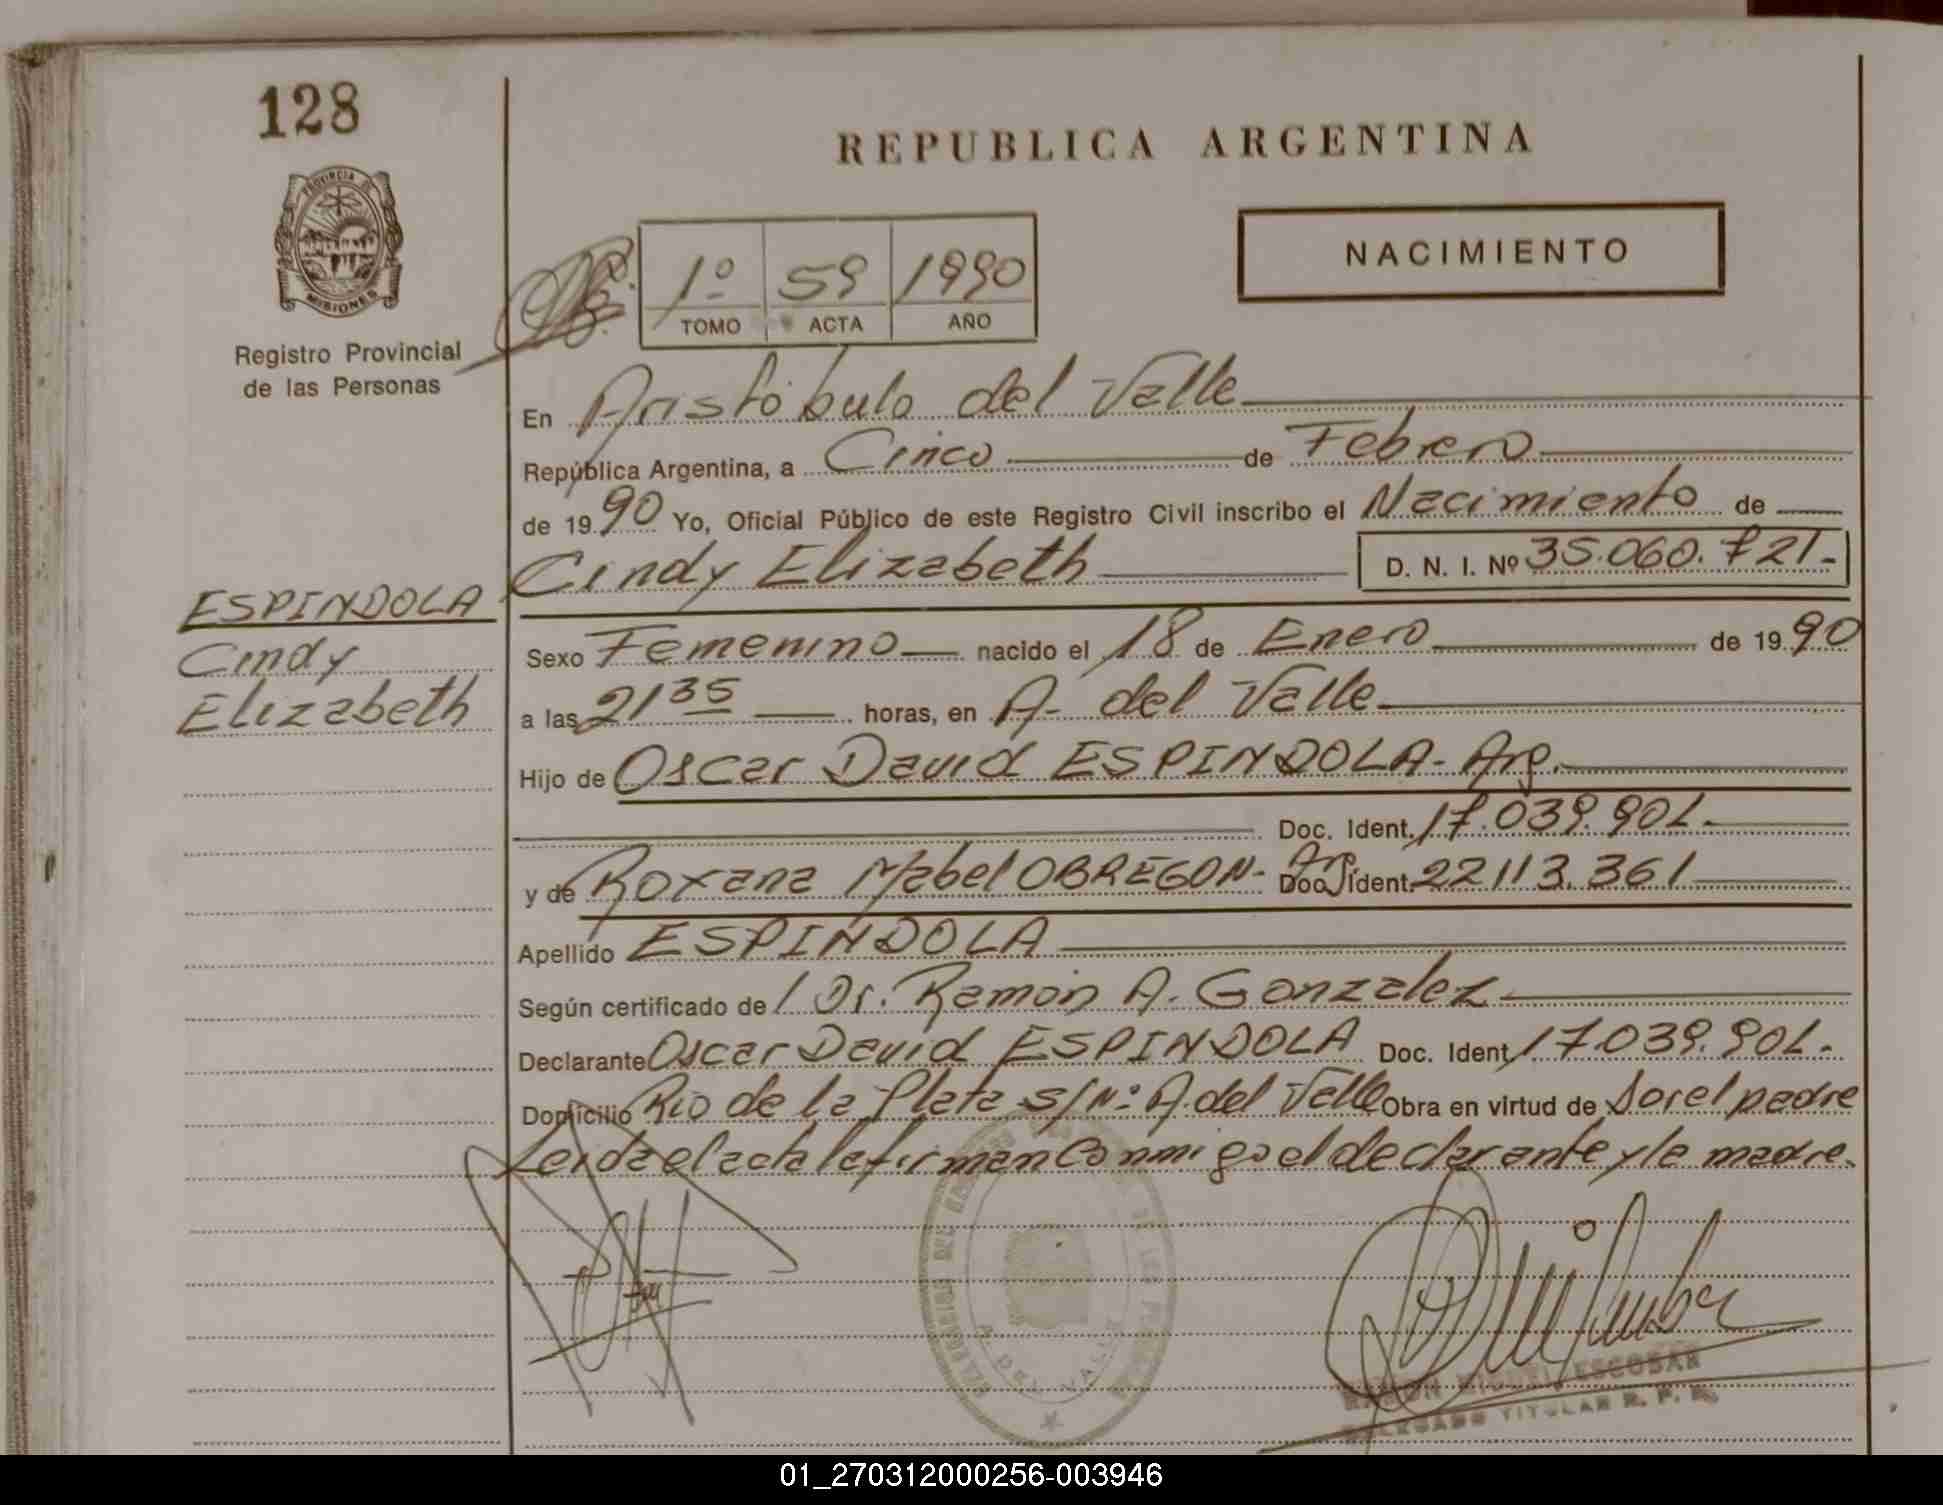 128
REPUBLICA ARGENTINA
PROVINCIA DE
MISIONES
Registro Provincial
de las Personas
NACIMIENTO
1º 59 1990
TOMO ACTA AÑO
En Aristóbulo del Valle
República Argentina, a Cinco de Febrero
de 1990 Yo, Oficial Público de este Registro Civil inscribo el Nacimiento de
Cindy Elizabeth D. N. I. Nº 35.060.721.-
ESPINDOLA
Cindy
Elizabeth
Sexo Femenino nacido el 18 de Enero de 1990
a las 21 35 horas, en A. del Valle
Hijo de Oscar David ESPINDOLA - Arg.
Doc. Ident. 17.039.901.
y de Roxana Mabel OBREGON - Arg. Doc. Ident. 22113.361
Apellido ESPINDOLA
Según certificado de Dr. Ramon A. Gonzalez
Declarante Oscar David ESPINDOLA Doc. Ident. 17.039.901.
Domicilio Rio de la Plata s/Nº A. del Valle Obra en virtud de Ser el padre
Leida el acta la firman Conmigo el declarante y la madre.
A. DEL VALLE
RAMON MIGUEL ESCOBAR
DELEGADO TITULAR R. P. P.
01_270312000256-003946